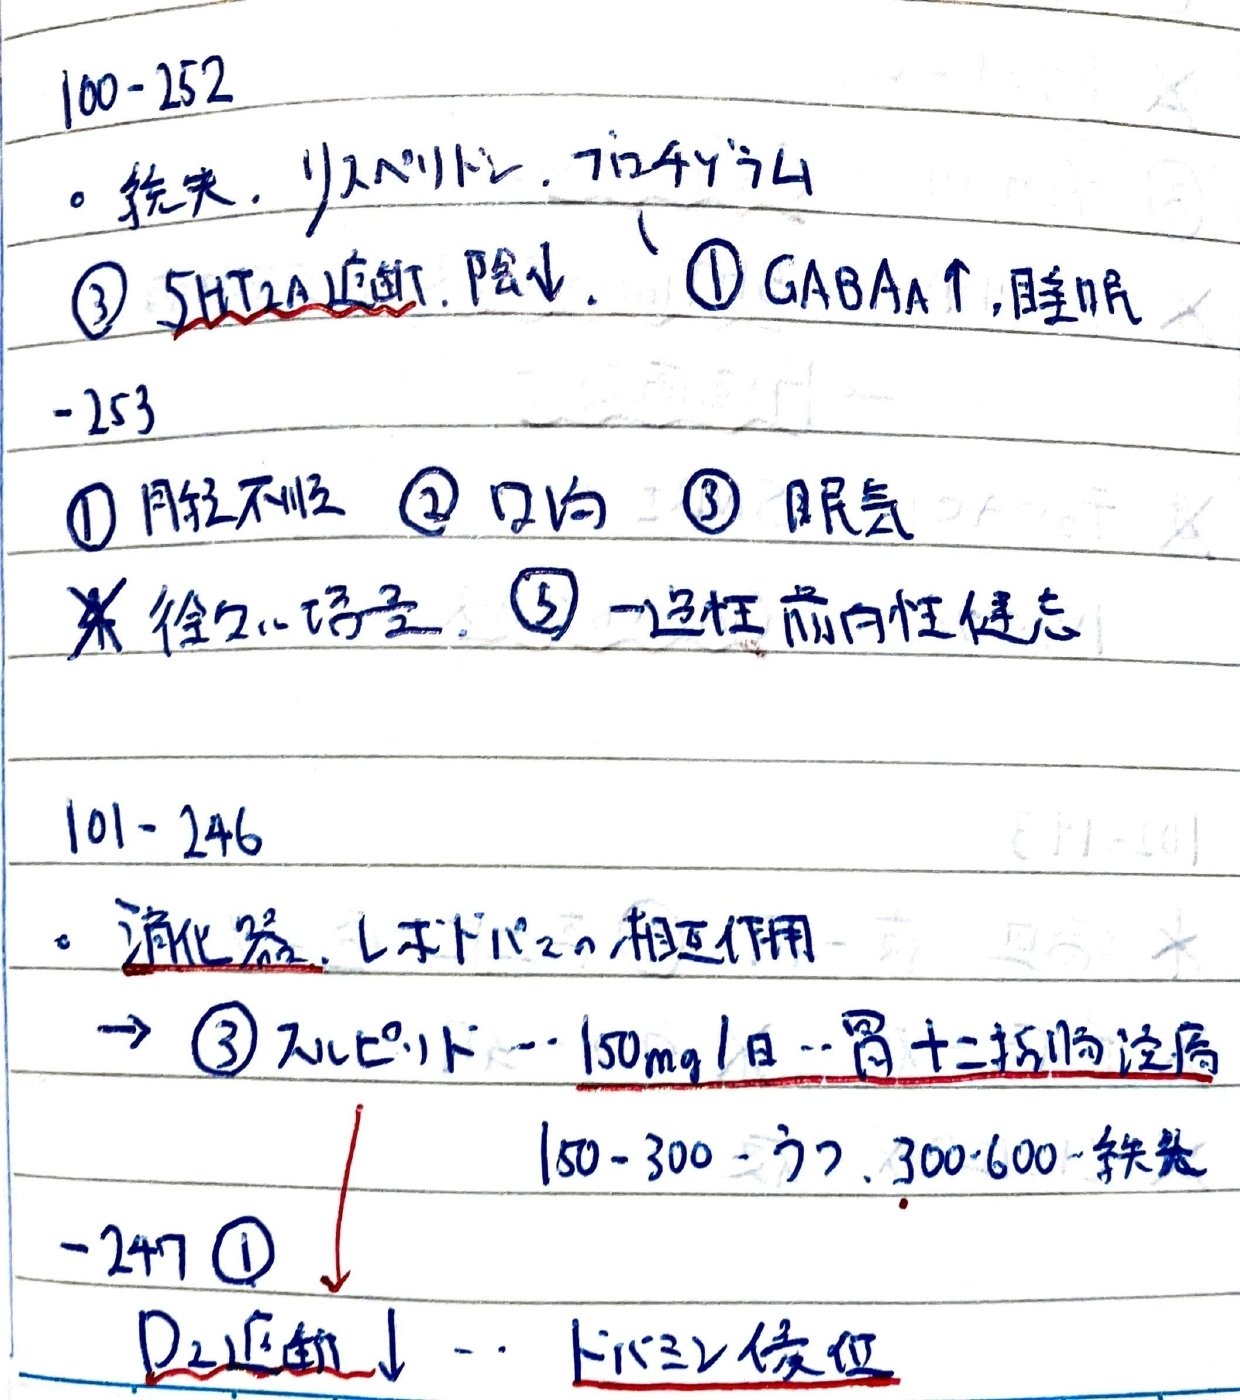 100-252
。統失. リスペリドン. ブロチゾラム
③ 5HT2A遮断. 陰↓. ① GABAA↑, 睡眠
-253
① 月経不順 ② 口渇 ③ 眠気
※ 徐々に増量. ⑤ 一過性前向性健忘
101-246
。消化器. レボドパとの相互作用
→ ③ スルピリド… 150mg/日…胃十二指腸潰瘍
150-300-うつ. 300-600-統失
-247 ①
D2遮断↓ … ドパミン優位